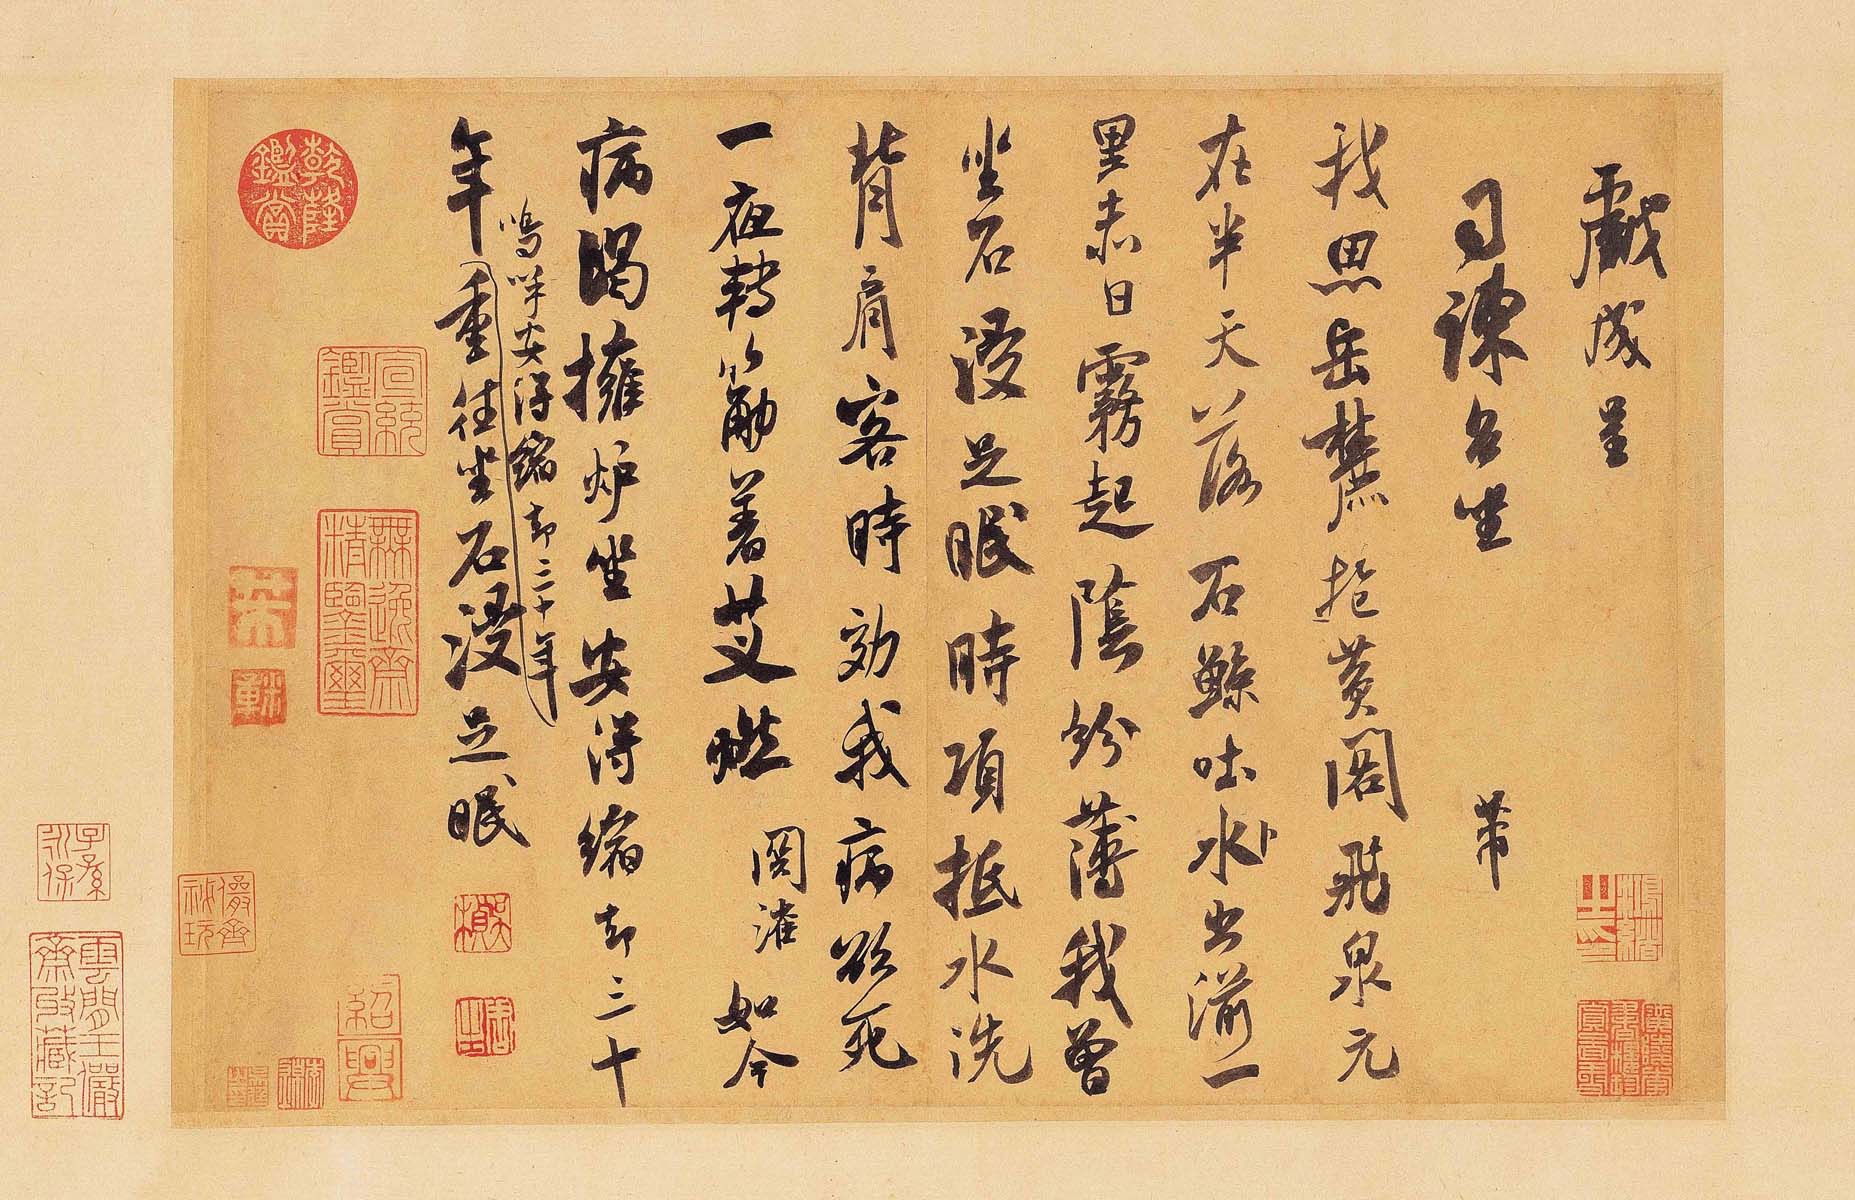 戲成呈
司諫台坐 芾
我思岳麓抱黃閣飛泉元
在半天落石鯨吐水出湔一
里赤日霧起蔭紛薄我曾
坐石浸足眠時項抵水洗
背肩客時効我病欲死
一夜轉筋著艾燃関灌如今
病渴擁炉坐安得縮却三十
年
嗚呼安得縮却三十年
重往坐石浸足眠
乾隆鑑賞
宣統鑑賞
無逸齋精鑒璽
紹興
儼齋秘玩
子孫永保
雲間王儼齋收藏記